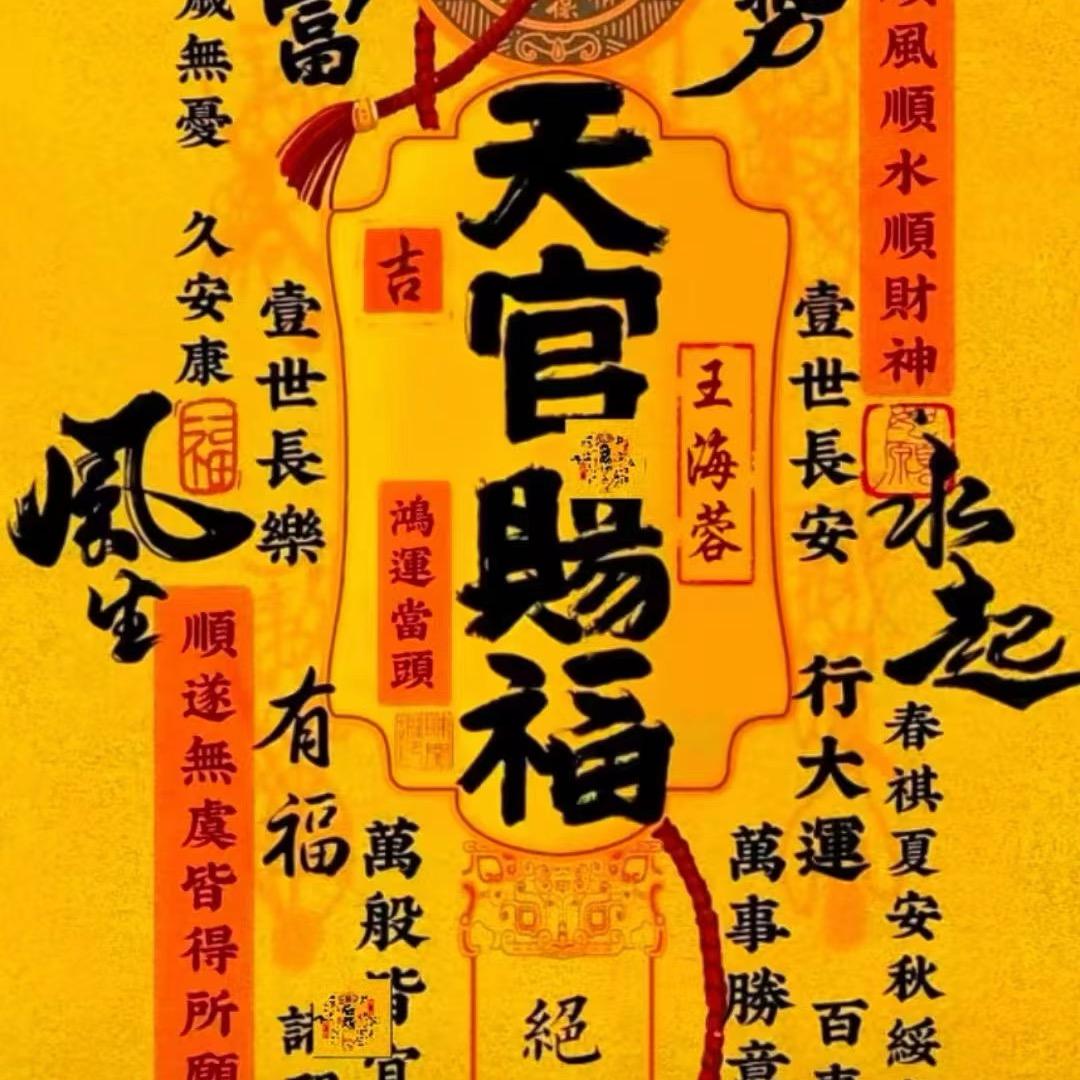 順風順水順財神
永起
春祺夏安秋綏
壹世長安
行大運
百事
萬事勝意
王海蓉
天官賜福
絕
吉
鴻運當頭
萬般皆宜
富
壹世長樂
有福
無憂
久安康
順遂無虞皆得所願
風生
福